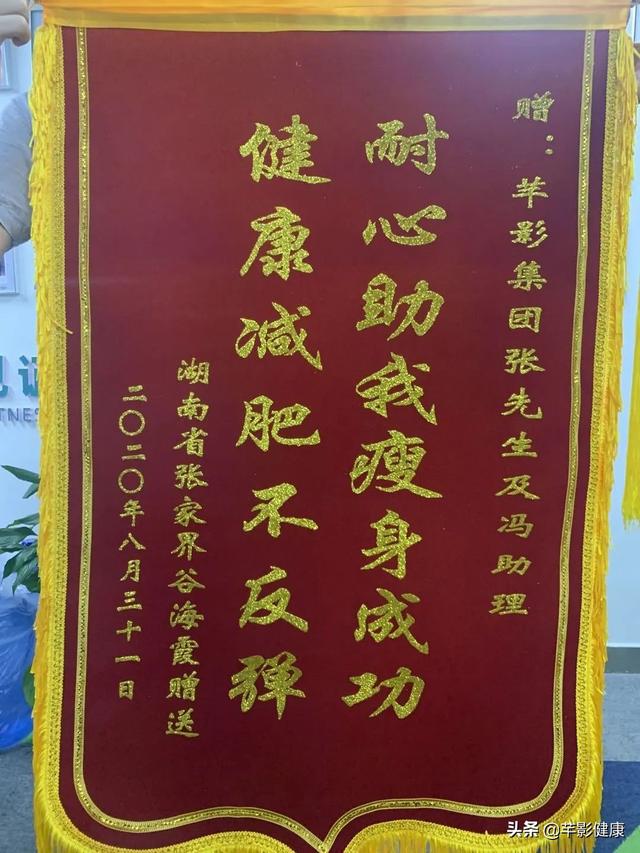 赠：芊影集团张先生及冯助理
耐心助我瘦身成功
健康减肥不反弹
湖南省张家界谷海霞赠送
二〇二〇年八月三十一日
TNES
头条 @芊影健康